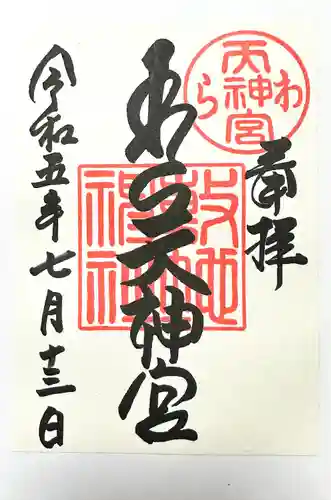 奉拝
わら天神宮
わら天神宮
敷地
神社
令和五年七月十三日